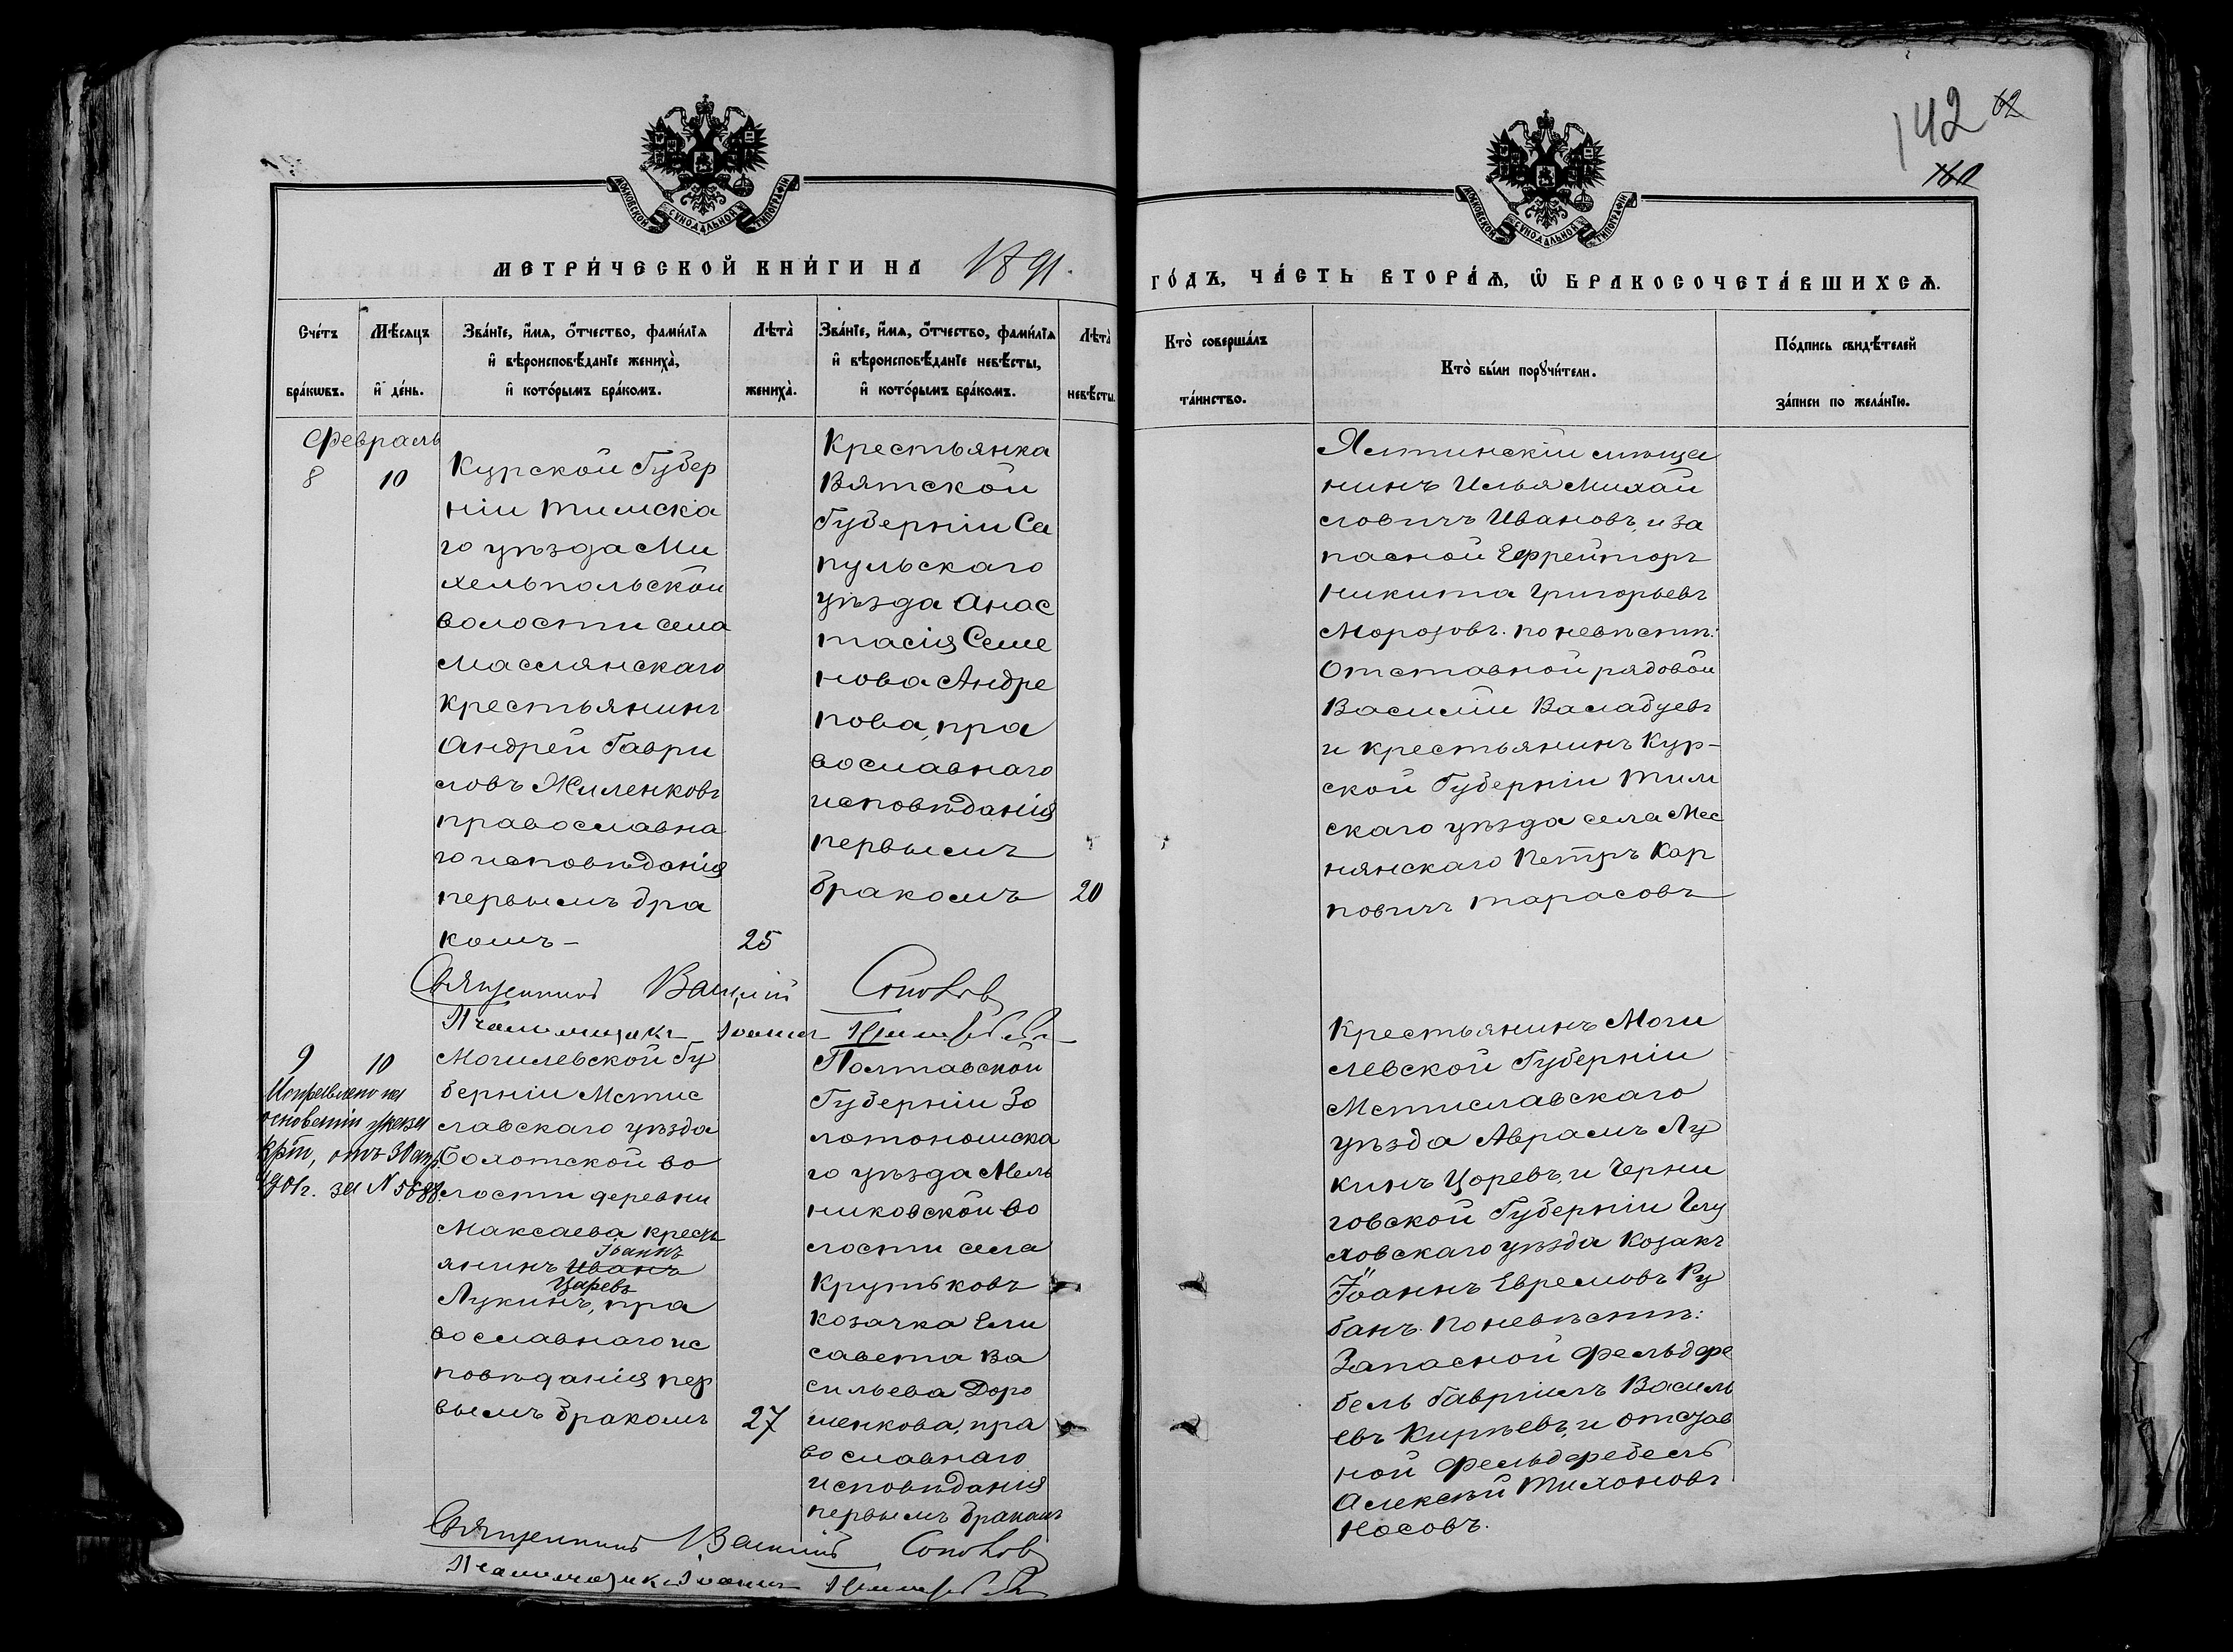 142 62
160
МОСКОВСКОЙ СУНОДАЛЬНОЙ ТИПОГРАФІИ
МОСКОВСКОЙ СУНОДАЛЬНОЙ ТИПОГРАФІИ
МЕТРИ́ЧЕСКОЙ КНИ́ГИ НА 1891.
ГО́ДЪ, ЧА́СТЬ ВТОРА́Ѧ, Ѡ҆ БРАКОСОЧЕТА́ВШИХСѦ.
Сче́тъ
бра́кѡвъ.
Мѣ́сѧцъ
и҆ де́нь.
Зва́нїе, и҆́мѧ, ѻ҆́тчество, фами́лїѧ
и҆ вѣроисповѣ́данїе жениха̀,
и҆ кото́рымъ бра́комъ.
Лѣта̀
жениха̀.
Зва́нїе, и҆́мѧ, ѻ҆́тчество, фами́лїѧ
и҆ вѣроисповѣ́данїе невѣ́сты,
и҆ кото́рымъ бра́комъ.
Лѣта̀
невѣ́сты.
Кто̀ соверша́лъ
та́инство.
Кто̀ бы́ли порꙋчи́тели.
По́дпись свидѣ́телей
за́писи по жела́нїю.
Февраль
8 10
Курской Губер
ніи Тимска
го уѣзда Ми
хельпольской
волости села
Маслянскаго
крестьянинъ
Андрей Гаври
ловъ Жиленковъ
православна
го исповѣданія
первымъ бра
комъ –
25
Крестьянка
Вятской
Губерніи Са
пульскаго
уѣзда Анас
тасія Семе
нова Андре
пова, пра
вославнаго
исповѣданія
первымъ
бракомъ
20
Ялтинскій мѣща
нинъ Илья Михай
ловичъ Ивановъ, и за
пасной Ефрейторъ
Никита Григорьевъ
Морозовъ. по невѣстѣ:
Отставной рядовой
Василій Валабуевъ
и крестьянинъ Кур-
ской Губерніи Тим
скаго уѣзда села Мес
нянскаго Петръ Кар
повичъ Тарасовъ
Священникъ Василій
Псаломщикъ Іоаннъ
9 10
Исправлено на
основаніи указа
отъ 30 апр.
1901г. за N 5688.
Могилевской Гу
берніи Мстис
лавскаго уѣзда
Бохотской во
лости деревни
Максаева крест
Іоаннъ
янинъ Иванъ
Царевъ
Лукинъ, пра
вославнаго ис
повѣданія пер
вымъ бракомъ
27
Полтавской
Губерніи Зо
лотоношска
го уѣзда Мель
никовской во
лости села
Крутьковъ
козачка Ели
савета Ва
сильева Доро
шенкова, пра
вославнаго
исповѣданія
первымъ бракомъ
Крестьянинъ Моги
левской Губерніи
Мстиславскаго
уѣзда Аврамъ Лу
кинъ Царевъ, и Черни
говской Губерніи Глу
ховскаго уѣзда Козакъ
Іоаннъ Евремовъ Ру
банъ. По невѣстѣ:
Запасной фельдфе
бель Гавріилъ Василь
евъ Кирѣевъ, и отстав
ной фельдфебель
Алексѣй Тихоновъ
Носовъ.
Священникъ Василій
Псаломщикъ Іоаннъ